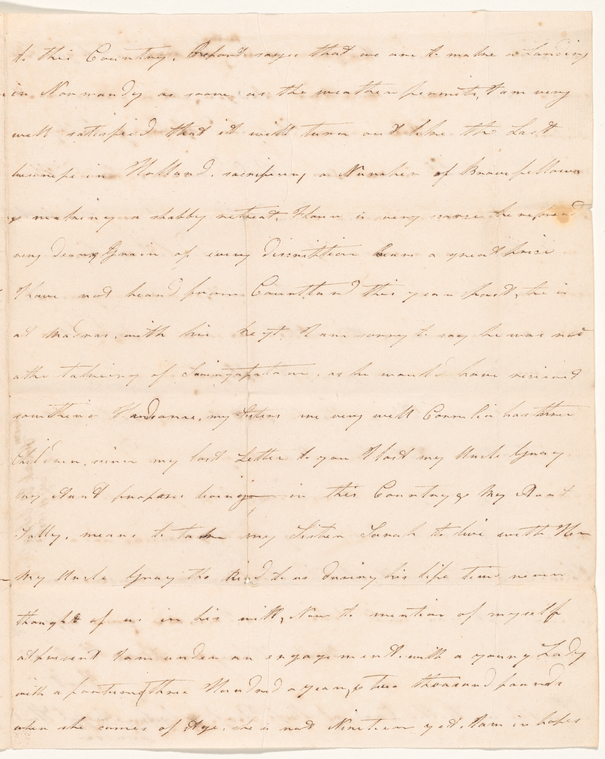 to this Country. Report says that we are to make a landing
in Normandy as soon as the weather permits, I am very
well satisfied that it will turn out like the Last
in Holland. sacrificing a Number of Brave fellows
& making a shabby retreat. Flour is very scarce here and
very dear, Grain of every discription bears a great price
I have not heard from Courtland this year past, he is
at Madras with his Regt. I am sorry to say he was not
at the takeing of Seringapatam, as he would have received
something Handsome, my Sisters are very well Cornelia has three
Children. since my last Letter to you I lost my Uncle Gray
my Aunt proposes living in this Country & My Aunt
means to take my Sister Sarah to live with Her
My Uncle Gray tho Kind to us during his life time never
thought of us in his will, Now to mention of myself
at present I am under an engagement with a young Lady
with a fortune three Hundred a year, & two thousand pounds
when she comes of Age. she is not Nineteen yet. I am in hopes